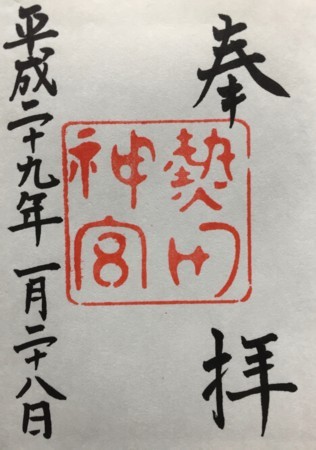 奉拝
熱田
神宮
平成二十九年一月二十八日